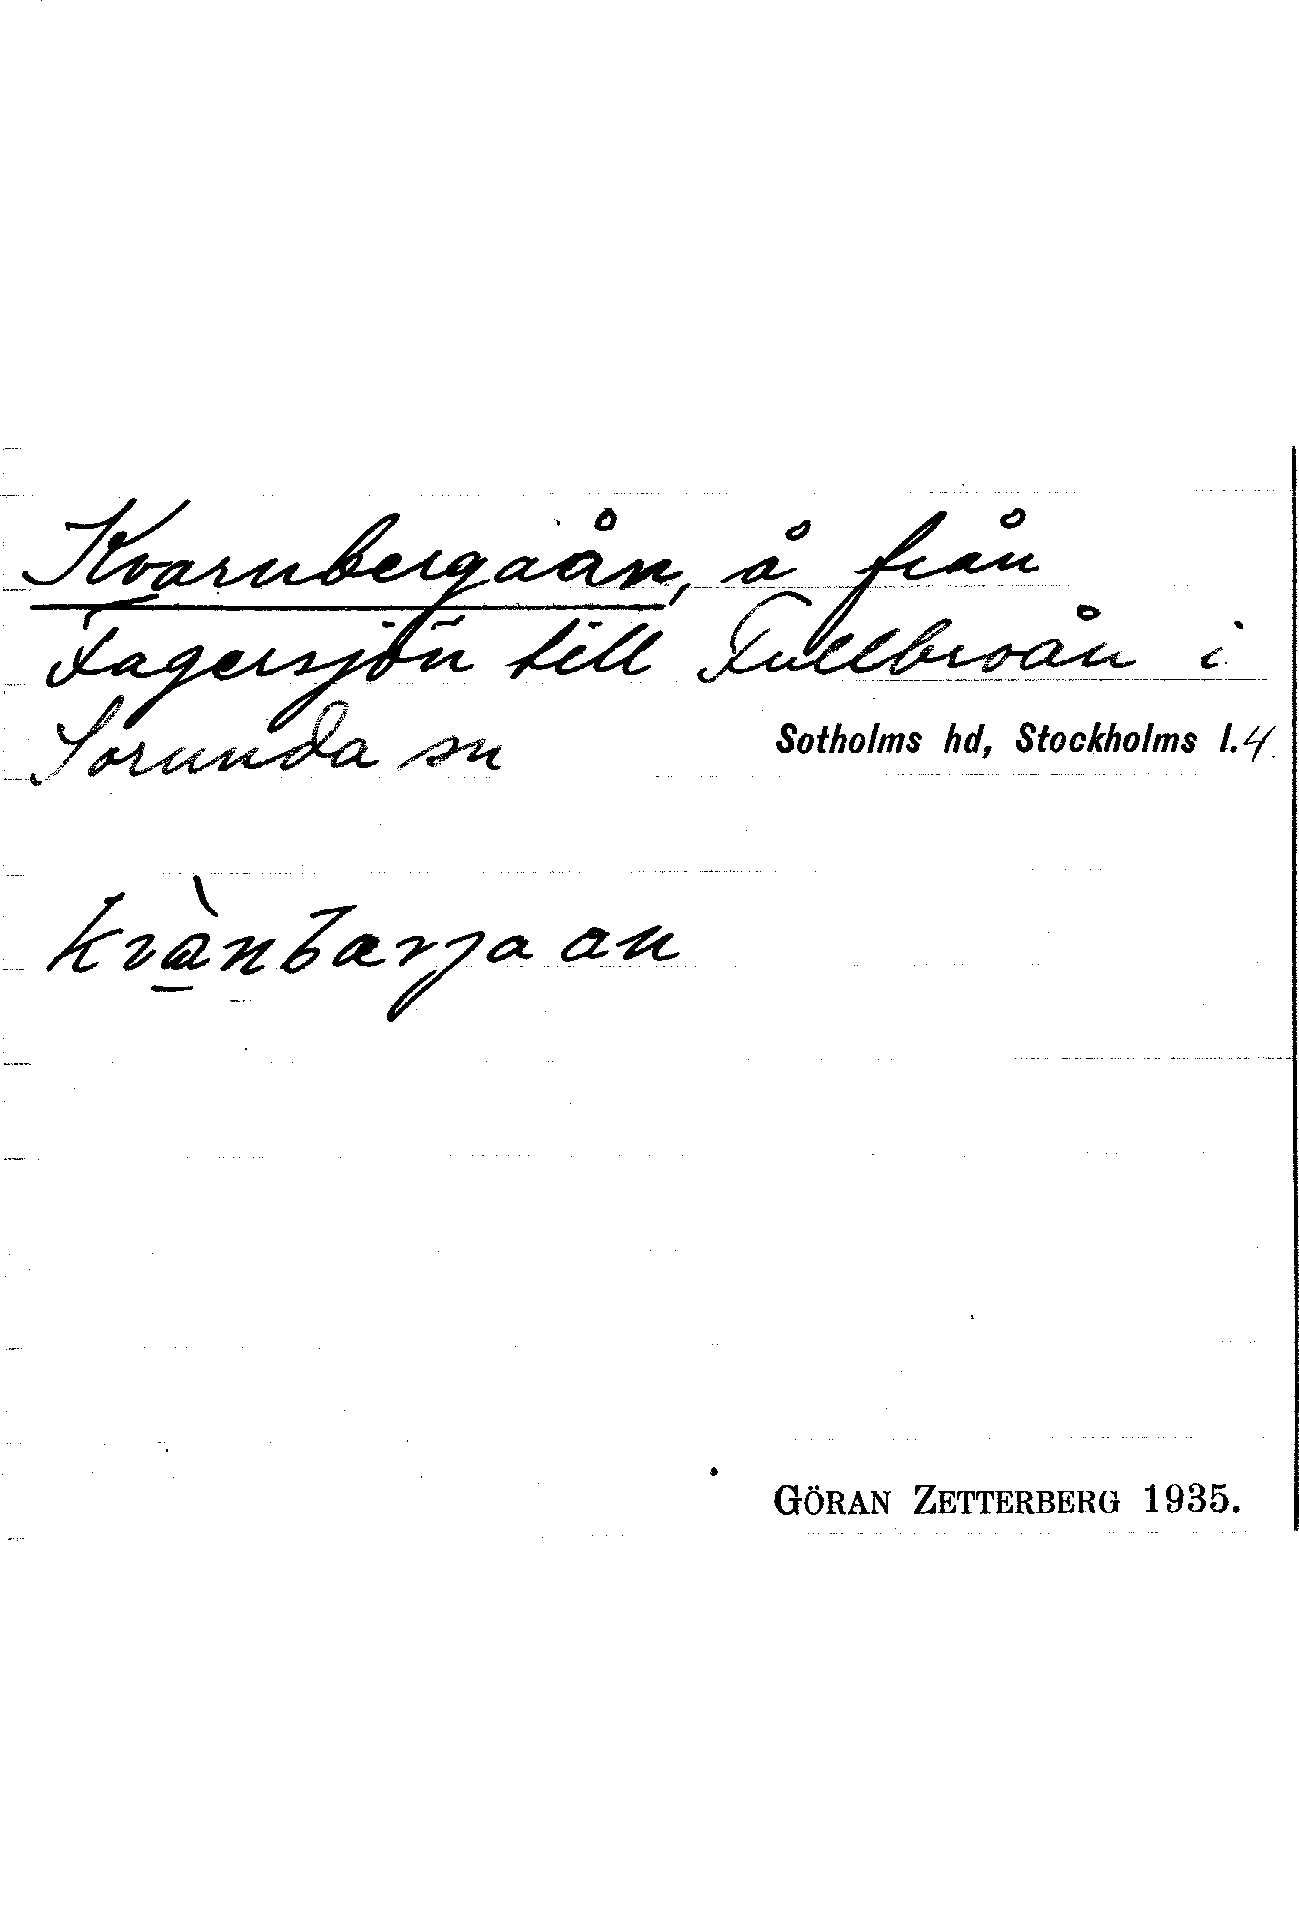 Kvarnbergaån, å från
Fagersjön till Fullbroån i
Sorunda sn Sotholms hd, Stockholms l. 4
kvànbærjaan
GÖRAN ZETTERBERG 1935.